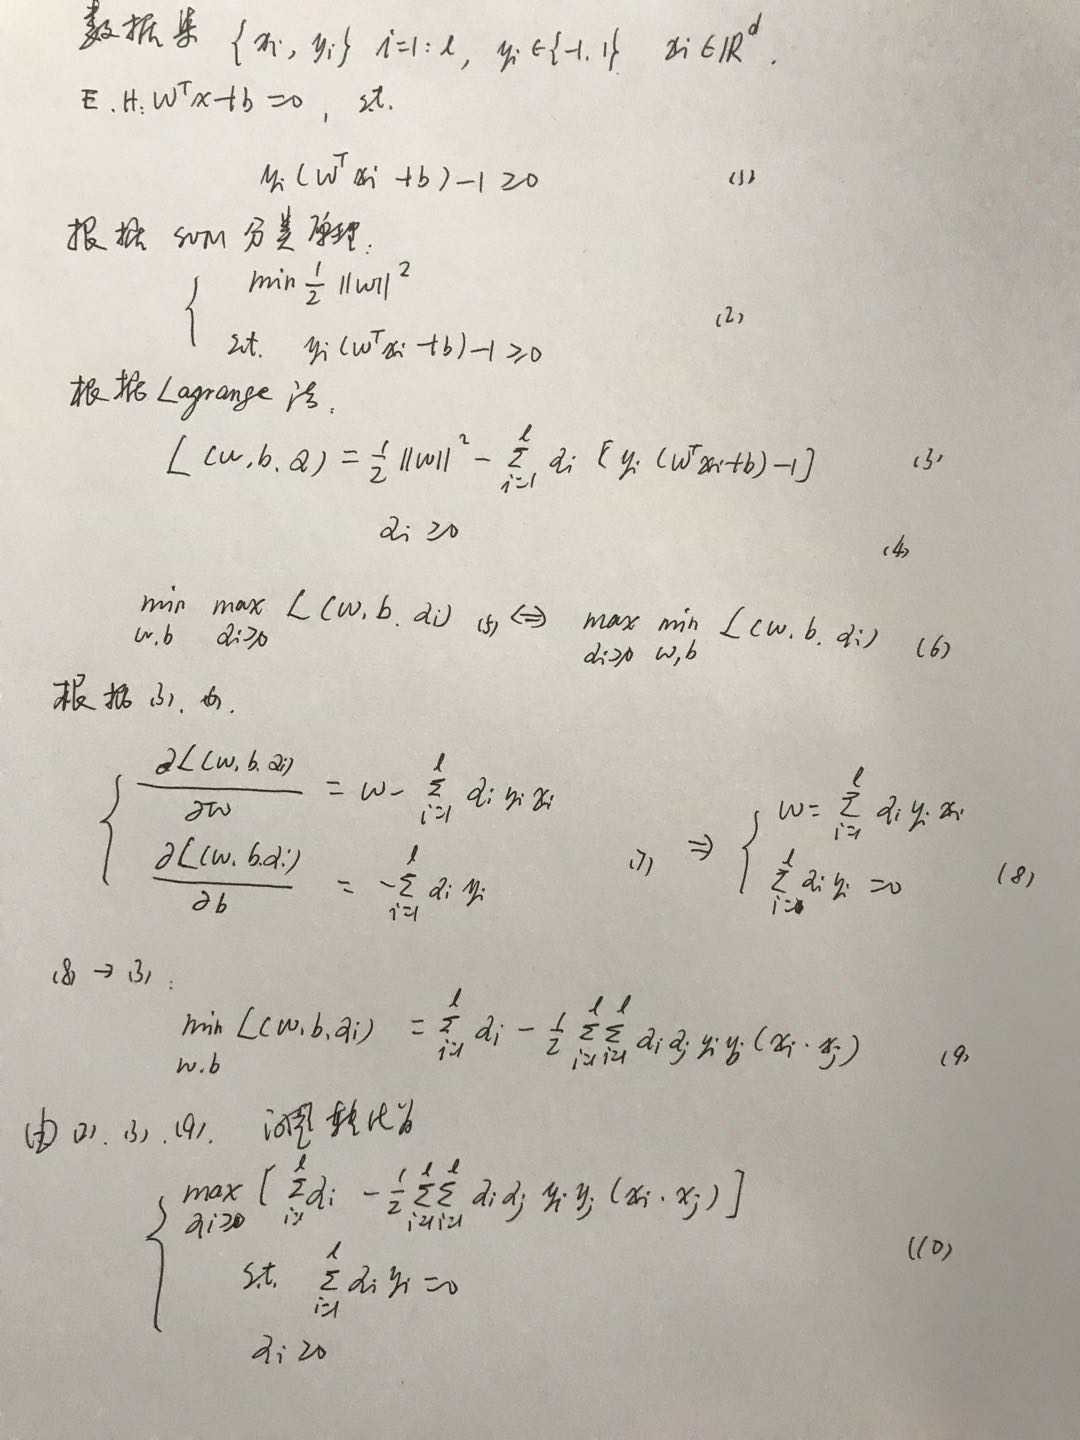 数据集 {xi, yi} i=1:l, yi∈{-1,1} xi∈ℝ^d.
E.H: w^T x+b=0, s.t.
yi(w^T xi+b)-1≥0 (1)
根据 SVM 分类原理:
min 1/2 ||w||^2
s.t. yi(w^T xi+b)-1≥0 (2)
根据 Lagrange 法,
L(w,b,α) = 1/2 ||w||^2 - Σ_{i=1}^{l} αi [yi(w^T xi+b)-1] (3)
αi≥0 (4)
min_{w,b} max_{αi≥0} L(w,b,αi) (5) ⇔ max_{αi≥0} min_{w,b} L(w,b,αi) (6)
根据 (3). (6).
∂L(w,b,αi)/∂w = w - Σ_{i=1}^{l} αi yi xi
∂L(w,b,αi)/∂b = -Σ_{i=1}^{l} αi yi (7) ⇒ { w=Σ_{i=1}^{l} αi yi xi
Σ_{i=0}^{l} αi yi =0 (8)
(8) → (3):
min_{w,b} L(w,b,αi) = Σ_{i=1}^{l} αi - 1/2 Σ_{i=1}^{l} Σ_{i=1}^{l} αi αj yi yj (xi·xj) (9)
由 (2). (3). (9). 问题转化为
max_{αi≥0} [Σ_{i=1}^{l} αi - 1/2 Σ_{i=1}^{l} Σ_{i=1}^{l} αi αj yi yj (xi·xj)]
s.t. Σ_{i=1}^{l} αi yi =0 (10)
αi≥0